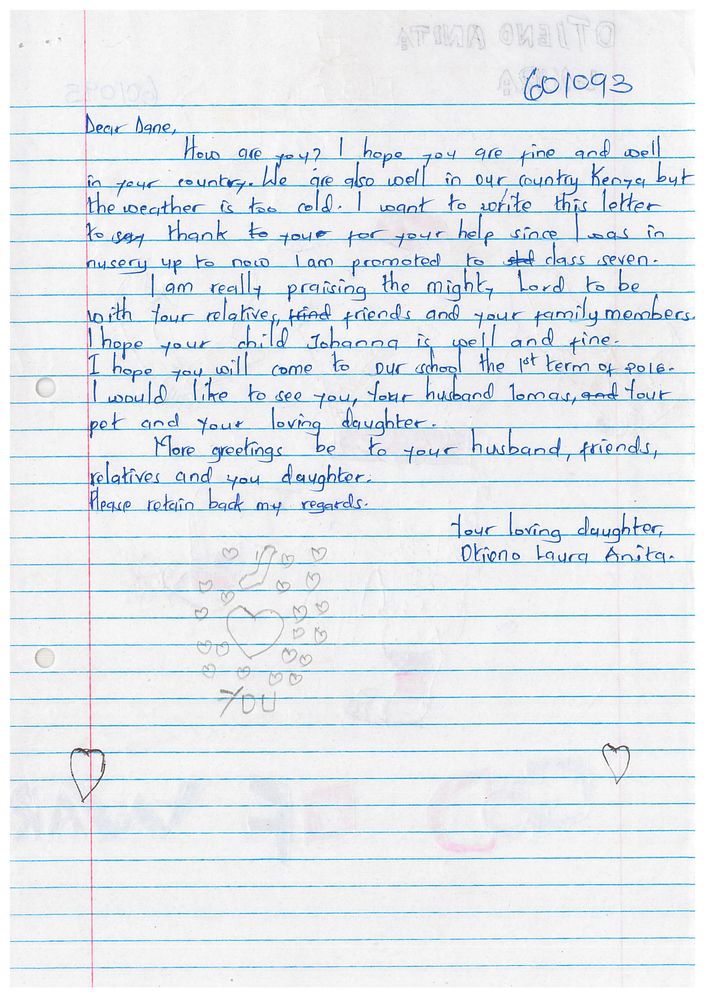 601093
Dear Dane,
How are you? I hope you are fine and well
in your country. We are also well in our country Kenya but
the weather is too cold. I want to write this letter
to say thank to your for your help since I was in
nusery up to now I am promoted to std class seven.
I am really praising the mighty Lord to be
with Your relatives, friend friends and your family members.
I hope your child Johanna is well and fine.
I hope you will come to our school the 1st term of 2016.
I would like to see you, Your husband Tomas, and Your
pet and Your loving daughter.
More greetings be to your husband, friends,
relatives and you daughter.
Please retain back my regards.
Your loving daughter,
Otieno Laura Anita.
I
YOU